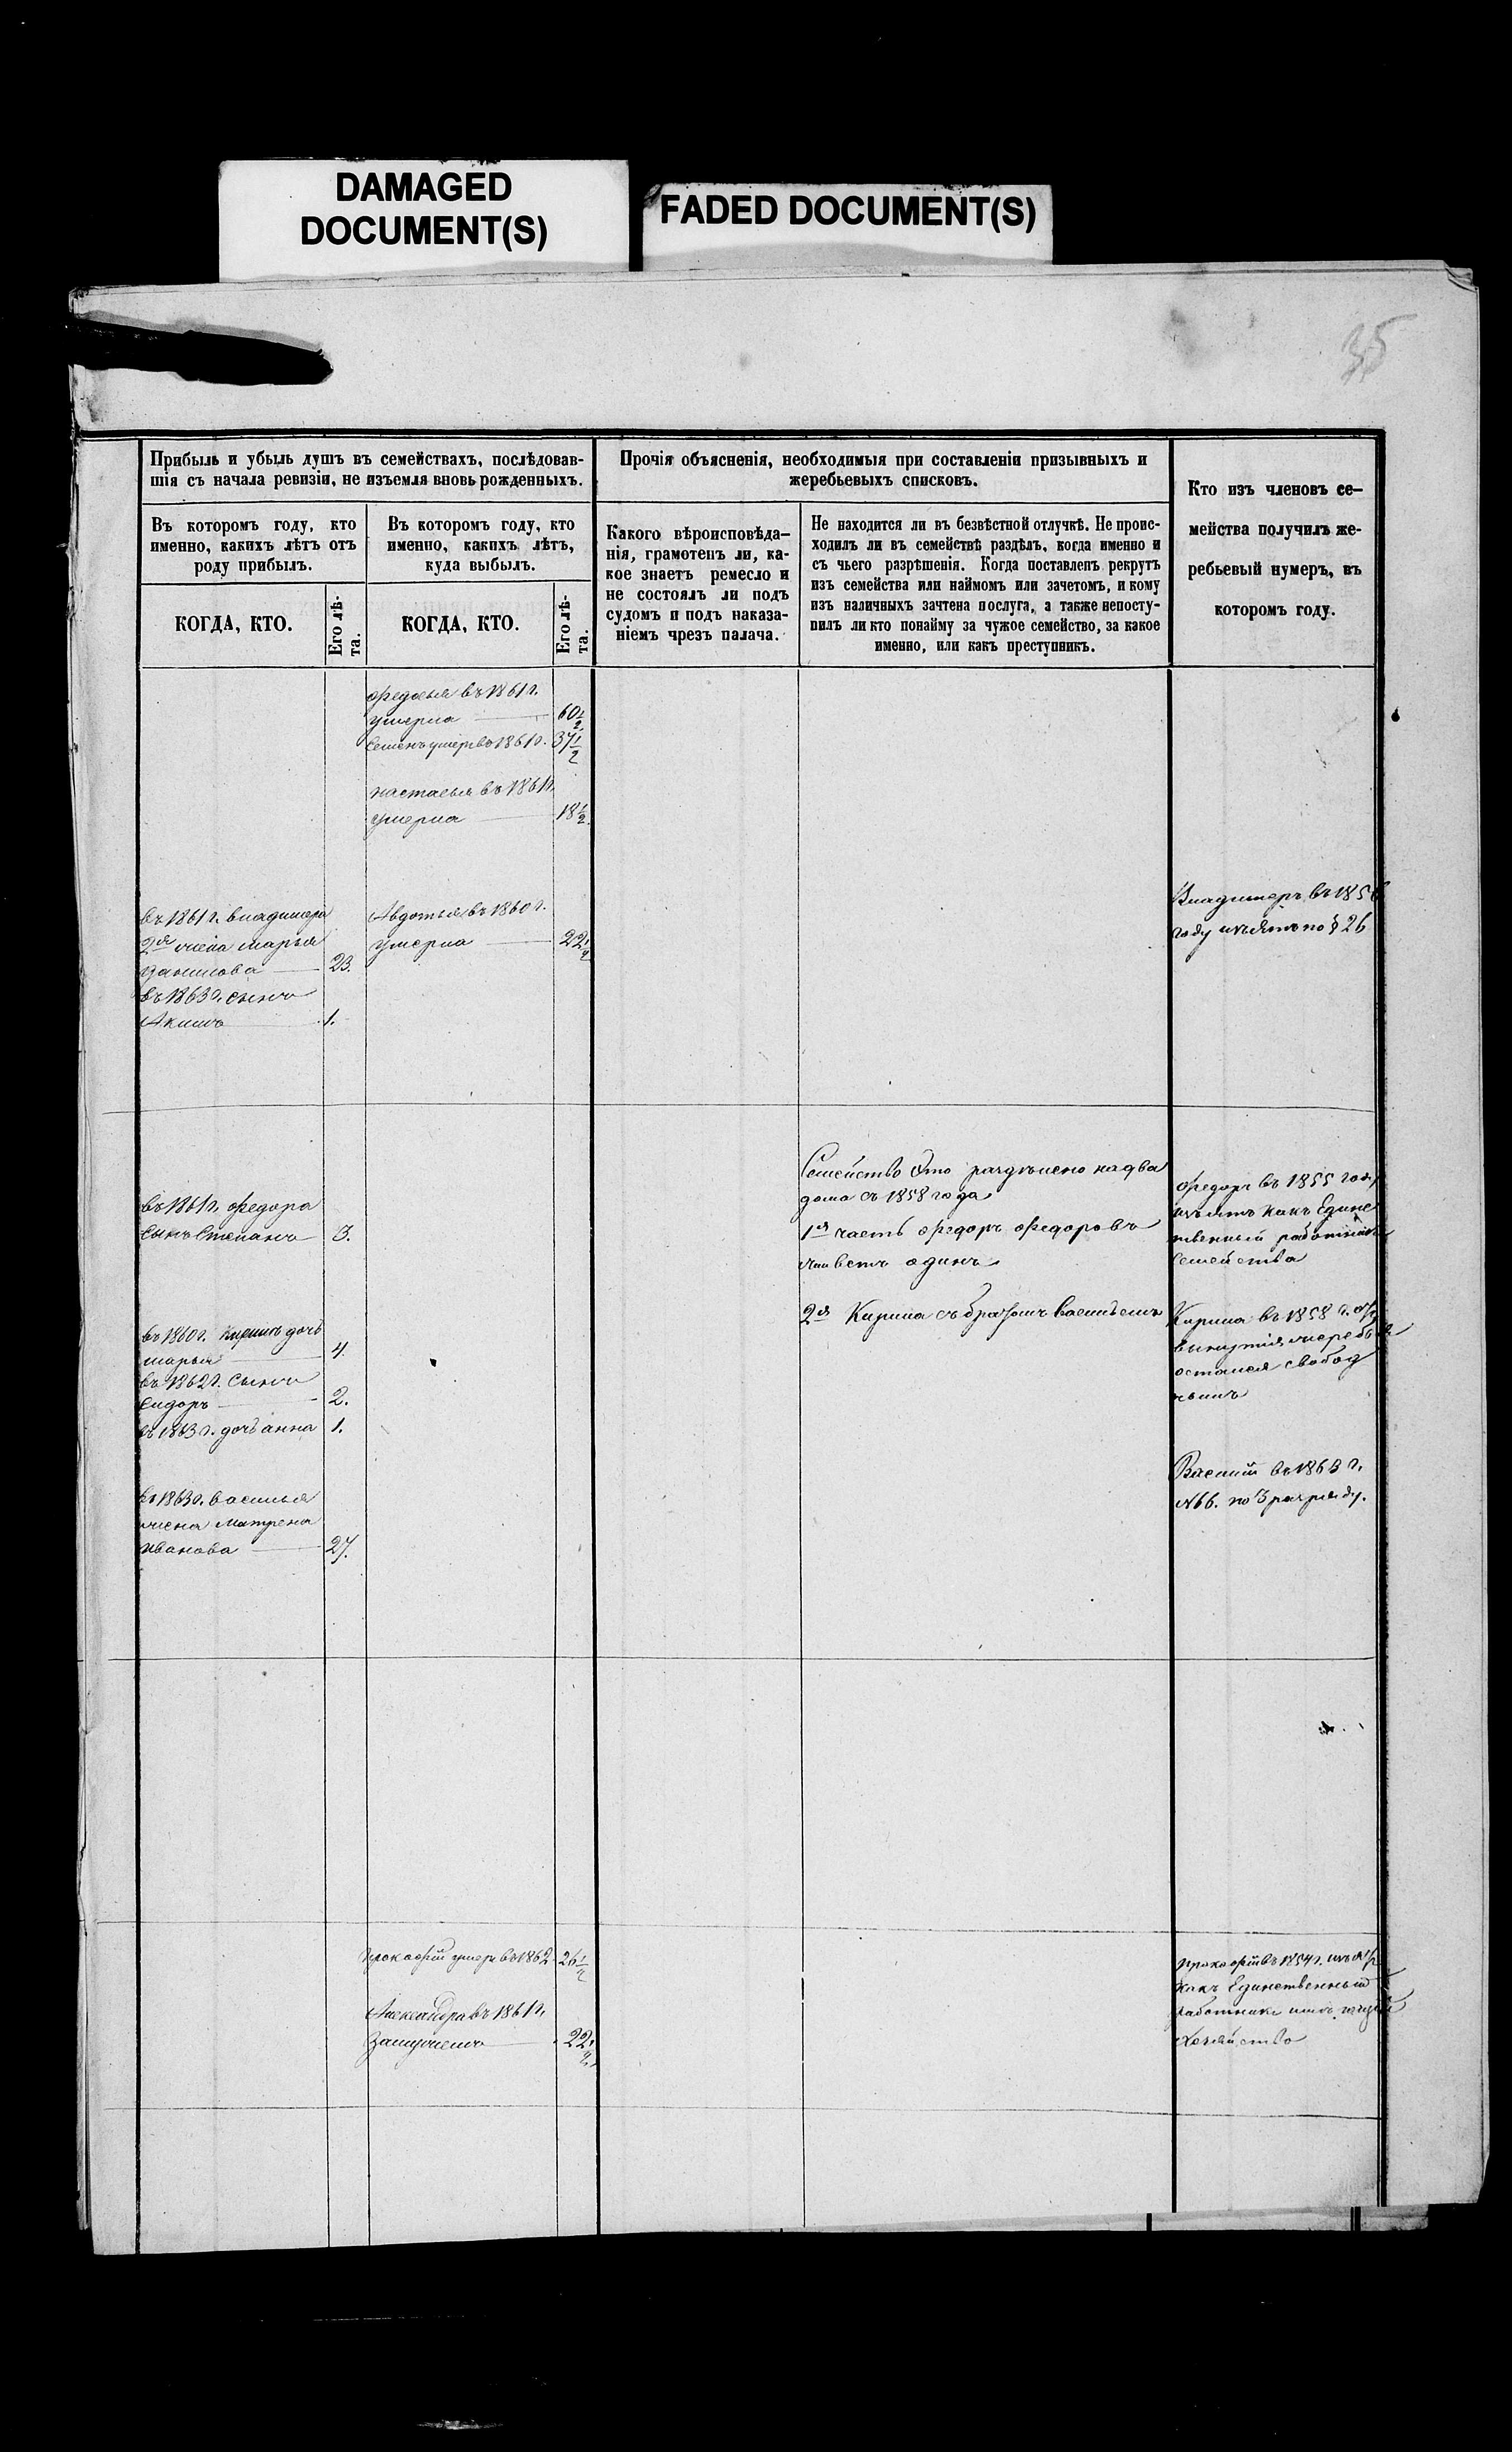 DAMAGED
DOCUMENT(S)
FADED DOCUMENT(S)
35
Прибыль и убыль душъ въ семействахъ, послѣдовав-
шія съ начала ревизіи, не изъемля вновь рожденныхъ.
Въ которомъ году, кто
именно, какихъ лѣтъ отъ
роду прибылъ.
КОГДА, КТО.
Его лѣ-
та.
Въ которомъ году, кто
именно, какихъ лѣтъ,
куда выбылъ.
КОГДА, КТО.
Его лѣ-
та.
Прочія объясненія, необходимыя при составленіи призывныхъ и
жеребьевыхъ списковъ.
Какого вѣроисповѣда-
нія, грамотенъ ли, ка-
кое знаетъ ремесло и
не состоялъ ли подъ
судомъ и подъ наказа-
ніемъ чрезъ палача.
Не находится ли въ безвѣстной отлучкѣ. Не проис-
ходилъ ли въ семействѣ раздѣлъ, когда именно и
съ чьего разрѣшенія. Когда поставленъ рекрутъ
изъ семейства или наймомъ или зачетомъ, и кому
изъ наличныхъ зачтена послуга, а также непосту-
пилъ ли кто понайму за чужое семейство, за какое
именно, или какъ преступникъ.
Кто изъ членовъ се-
мейства получилъ же-
ребьевый нумеръ, въ
которомъ году.
въ 1861 г.
умерла 60 1/2
Семенъ умеръ въ 1861 г. 37 1/2
настасья въ 1861 г.
умерла 18 1/2
въ 1861 г. владимера
2я жена марья
данилова 23.
въ 1863 г. сынъ
Акимъ 1.
Авдотья въ 1860 г.
умерла 22 1/2
Владимеръ въ 1856
году изъятъ по § 26
въ 1861 г. федора
сынъ Степанъ 3.
Семейство Это раздѣлено на два
дома съ 1858 года
1я часть федоръ федоровъ
живетъ одинъ
федоръ въ 1855 году
изъятъ какъ Един
ственный работникъ
семейства
въ 1860 г. дочь
марья 4.
въ 1862 г. Сынъ
Сидоръ 2.
въ 1863 г. дочь анна 1.
2я Кирила съ братомъ васильемъ
Кирила въ 1858 г.
вынутія жеребья
остался свобод
нымъ
въ 1863 г. василья
жена Матрена
иванова 27.
Василій въ 1863 г.
№ 66. по 3 разряду.
прокофій умеръ въ 1862 26 1/2
Александра въ 1861 г.
Замужемъ 22 1/2
прокофій въ 1854 г. изъятъ
какъ Единственный
работникъ
хозяйство